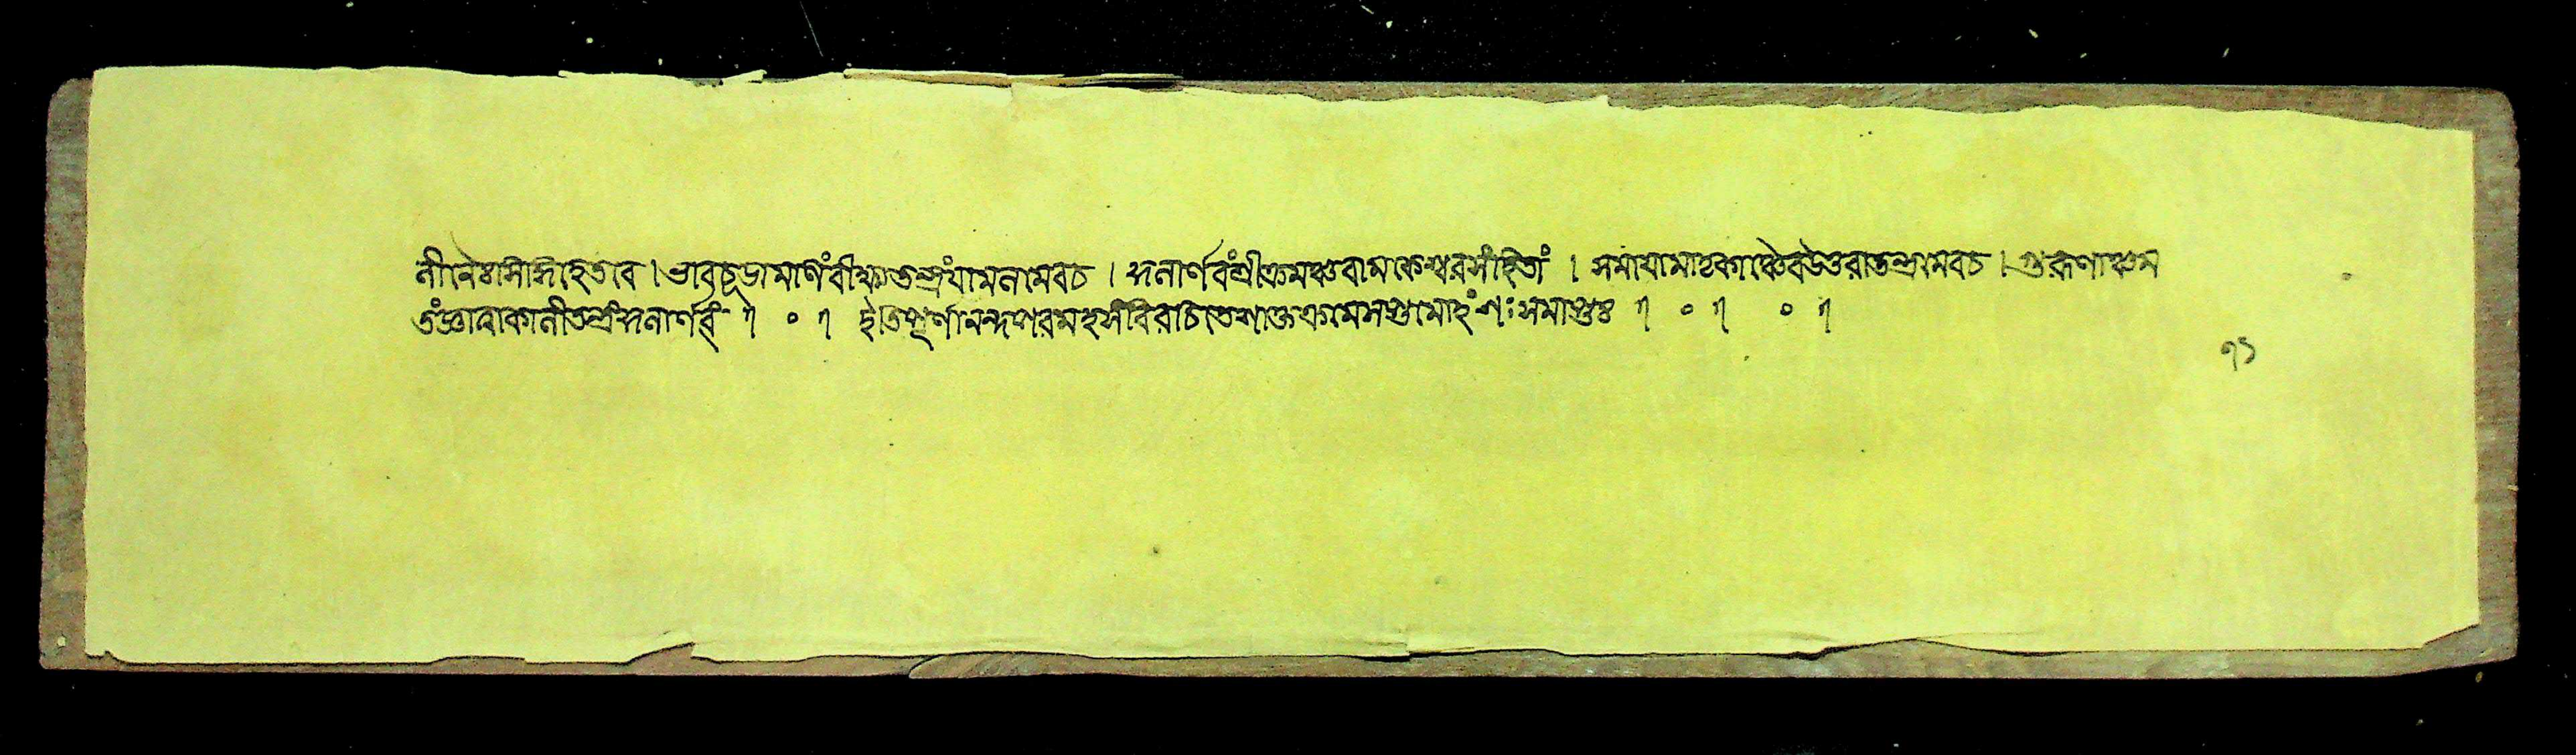 নীনেঃ সাসিদ্ধিহেতবে । ভাবচূড়ামণিং বীক্ষ্য তন্ত্রং যামলমেব চ । কুলার্ণবং শ্রীক্রমঞ্চ বামকেশ্বরসংহিতাং । সময়ামাতৃকাঞ্চৈব উত্তরাতন্ত্রমেব চ । গুরূণাঞ্চ ম
তং জ্ঞাত্বা কালীতন্ত্রং কুলার্ণবং ৷ ০ ৷ ইতি পূর্ণানন্দপরমহংসবিরচিতে শাক্তক্রমে সপ্তমোহংশঃ সমাপ্তঃ ৷ ০ ৷ ০ ৷
৭১